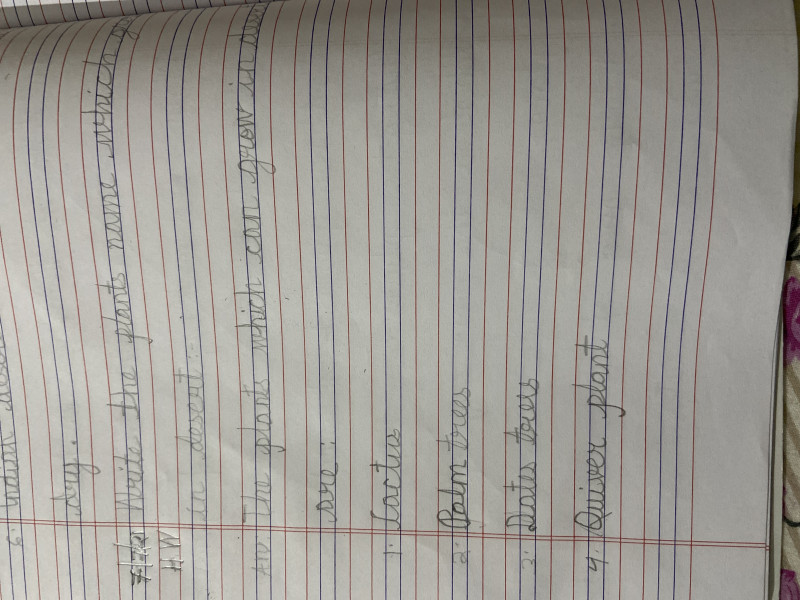 6. Indian desert
dry.
Write the plants name which
HW in desert :-
The plants which can grow in
are :
1. Cactus
2. Palm trees
3. Dates trees
4. Quiver plant